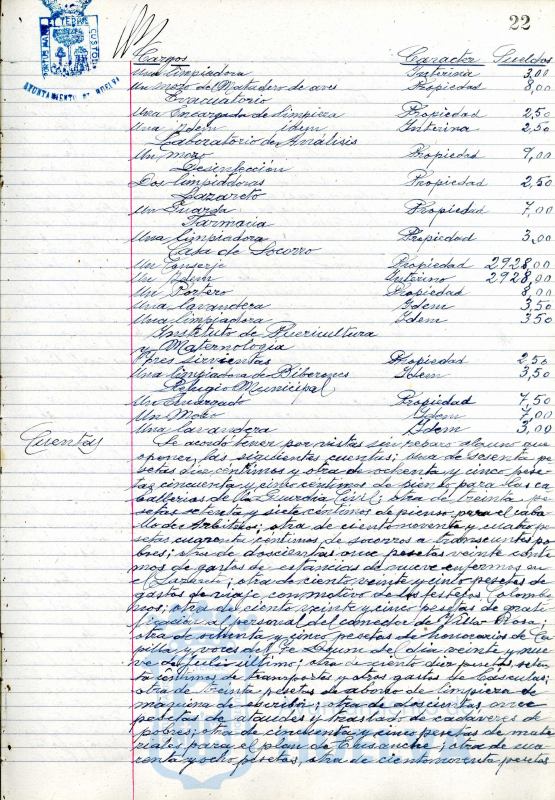 22
Cargos Caracter Sueldos
Una limpiadora Interina 3,00
Un mozo del Matadero de aves Propiedad 8,00
Evacuatorio
Una Encargada de limpieza Propiedad 2,50
Una Idem idem Interina 2,50
Laboratorio de Análisis
Un mozo Propiedad 9,00
Desinfección
Dos limpiadoras Propiedad 2,50
Lazareto
Un Guarda Propiedad 7,00
Farmacia
Una limpiadora Propiedad 3,00
Casa de Socorro
Un Conserje Propiedad 2928,00
Un Idem Interino 2928,00
Un Portero Propiedad 8,00
Una lavandera Idem 3,50
Una limpiadora Idem 3,50
Instituto de Puericultura
y Maternologia
Tres sirvientas Propiedad 2,50
Una limpiadora de Biberones Idem 3,50
Refugio Municipal
Un Encargado Propiedad 7,50
Un Mozo Idem 7,00
Una lavandera Idem 3,00
Cuentas
Se acordó tener por vistas sin reparo alguno que
oponer, las siguientes cuentas; una de sesenta pe
setas diez céntimos y otra de ochenta y cinco pese-
tas cincuenta y cinco céntimos de pienso para las ca
ballerias de la Guardia Civil; otra de treinta pe
setas setenta y siete céntimos de pienso para el caba
llo de Arbitrios; otra de ciento noventa y cuatro pe
setas cuarenta céntimos de socorros a transeuntes po
bres; otra de doscientas once pesetas veinte cénti
mos de gastos de estancias de nueve enfermos en
el Lazareto; otra de ciento veinte y cinco pesetas de
gastos de viaje, con motivo de los festejos Colombi
nos; otra de ciento veinte y cinco pesetas de grati
ficacion al personal del comedor de Villa Rosa;
otra de ochenta y cinco pesetas de honorarios de Ca
pilla y voces del Te Deum del dia veinte y nue
ve de Julio último; otra de ciento diez pesetas seten
ta céntimos de transportes y otros gastos de
otra de treinta pesetas de abono de limpieza de
maquina de escribir; otra de doscientas once
pesetas de ataudes y traslado de cadaveres de
pobres; otra de cincuenta y cinco pesetas de mate
riales para el plan de Ensanche; otra de cua
renta y ocho pesetas, otra de ciento noventa pesetas